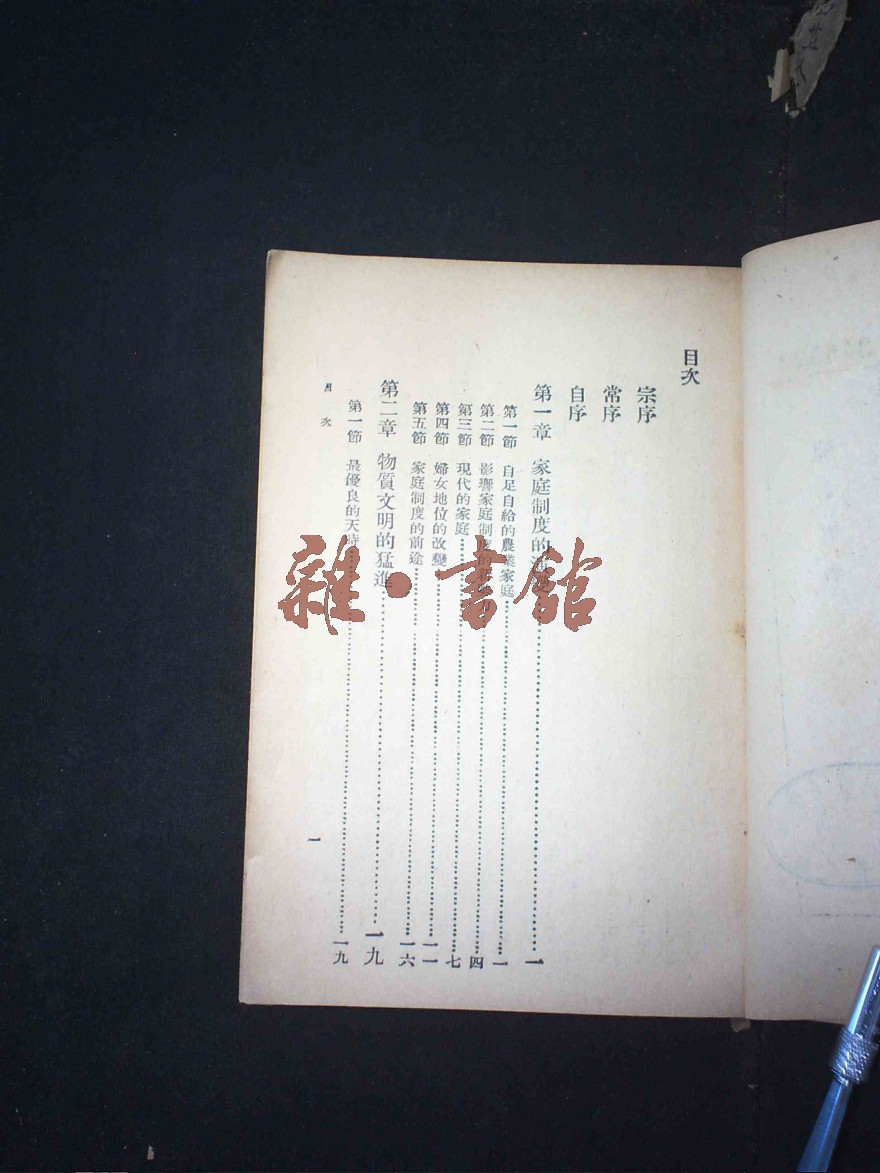 目次
宗序
常序
自序
第一章 家庭制度的演變 一
第一節 自足自給的農業家庭 一
第二節 影響家庭制度的 四
第三節 現代的家庭 七
第四節 婦女地位的改變 一一
第五節 家庭制度的前途 一六
第二章 物質文明的猛進 一九
第一節 最優良的天時 一九
目次
一
雜·書館